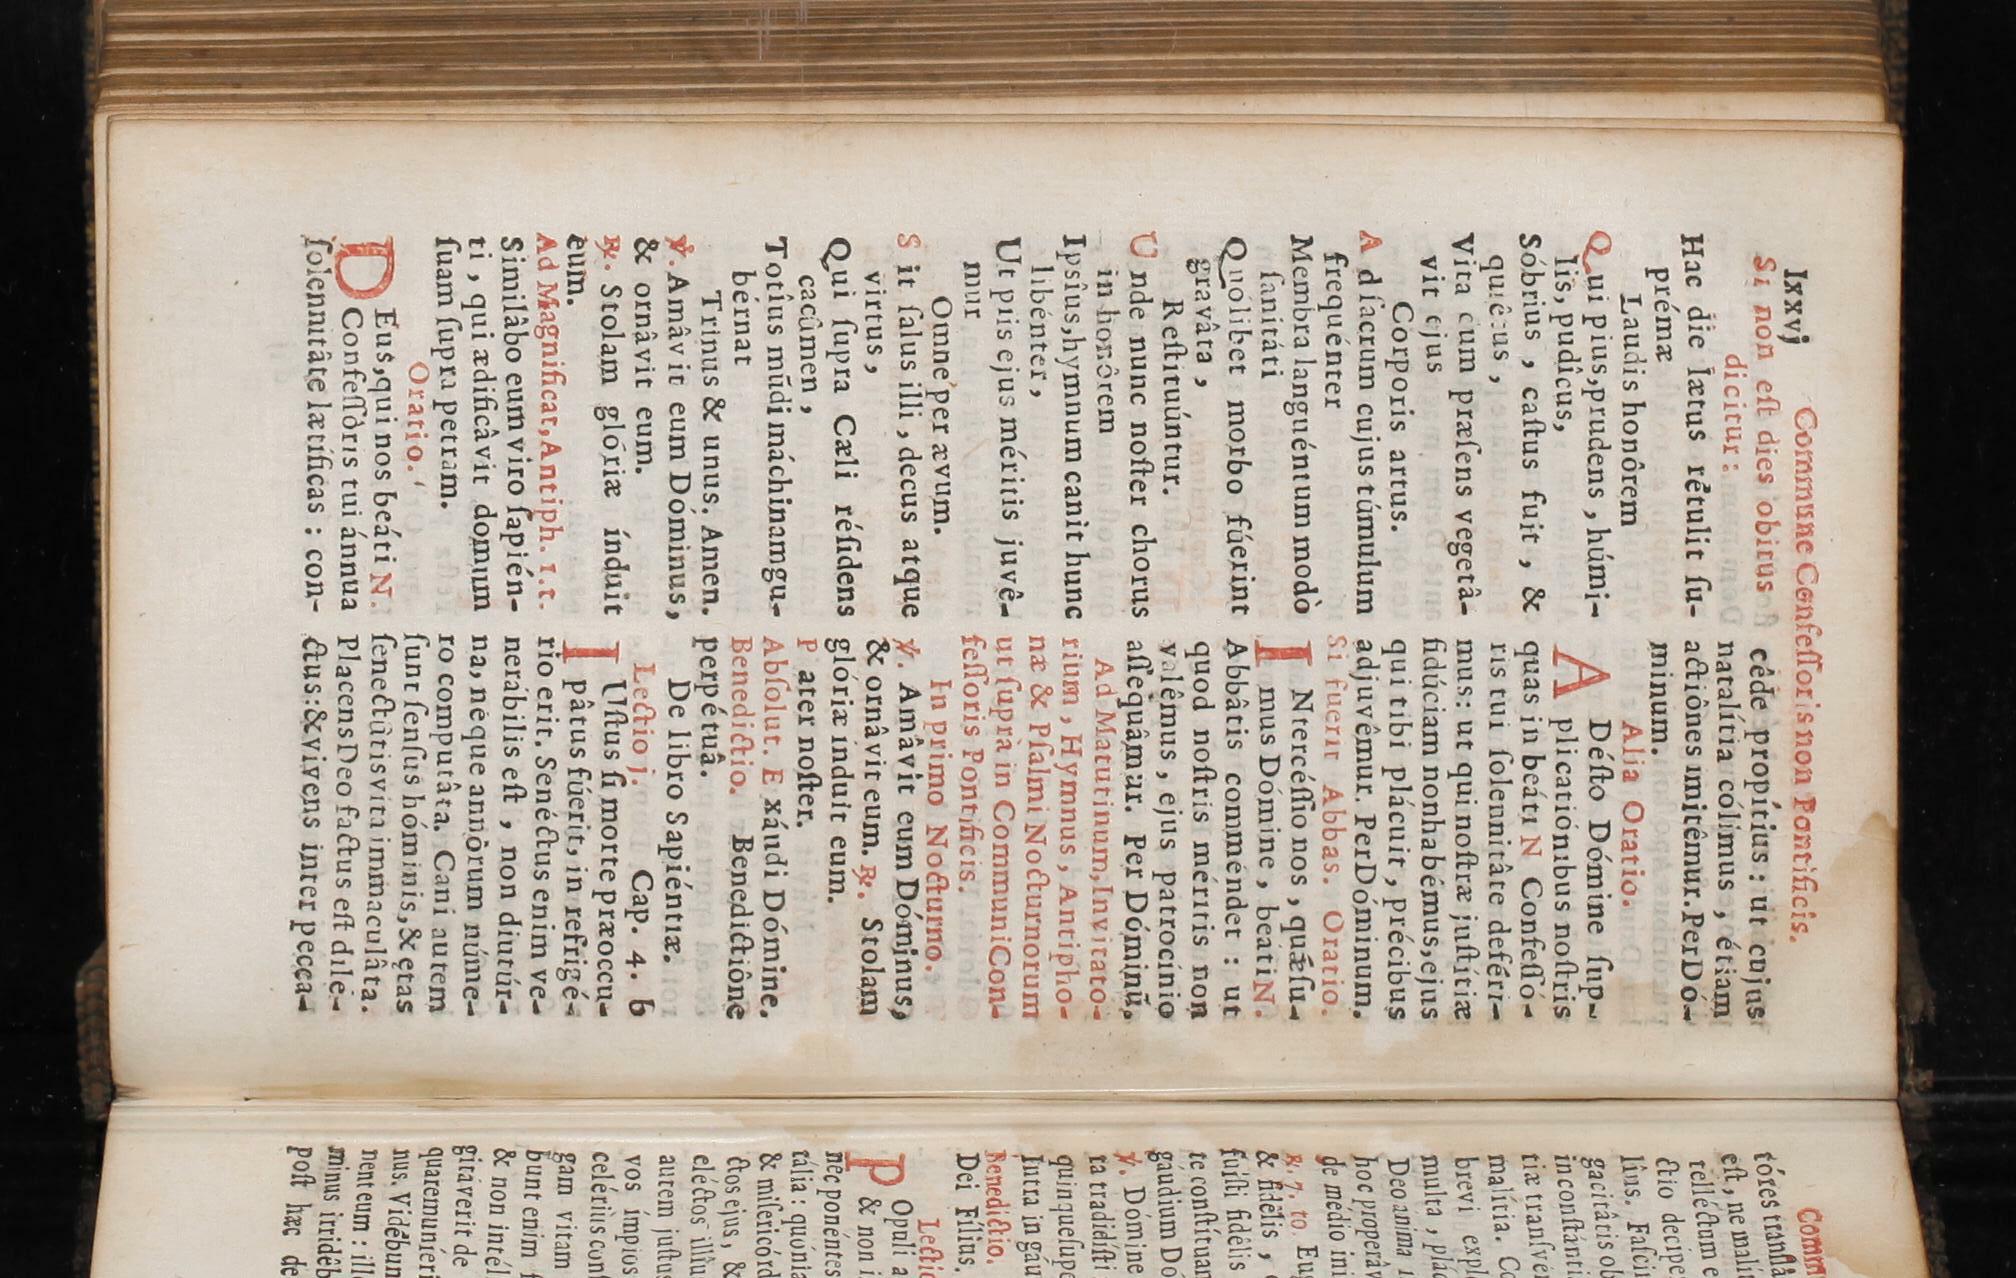 lxxvj
Commune Confeſſoris non Pontificis.
Si non eſt dies obitus
dicitur:
Hac die lætus rétulit ſu-
prémæ
Laudis honôrem
Qui pius, prudens, húmi-
lis, pudîcus,
Sóbrius, caſtus fuit, &
quiêtus,
Vita cum præſens vegetâ-
vit ejus
Corporis artus.
Ad ſacrum cujus túmulum
frequénter
Membra languéntum modò
ſanitáti
Quólibet morbo fúerint
gravâta,
Reſtituúntur.
Unde nunc noſter chorus
in honôrem
Ipsîus, hymnum canit hunc
libénter,
Ut piis ejus méritis juvê-
mur
Omne per ævum.
Sit ſalus illi, decus atque
virtus,
Qui ſupra Cæli réſidens
cacûmen,
Totîus mũdi máchinam gu-
bérnat
Trinus & unus. Amen.
℣. Amâvit eum Dóminus,
& ornâvit eum.
℟. Stolam glóriæ índuit
eum.
Ad Magnificat, Antiph. 1. t.
Similâbo eum viro ſapién-
ti, qui ædificâvit domum
ſuam ſupra petram.
Oratio.
DEus, qui nos beáti N.
Confeſſôris tui ánnua
ſolennitâte lætíficas: con-
cêde propítius: ut cujus
natalítia cólimus, étiam
actiônes imitêmur. Per Dó-
minum.
Alia Oratio.
ADéſto Dómine ſup-
plicatiónibus noſtris
quas in beáti N Confeſſó-
ris tui ſolennitâte deféri-
mus: ut qui noſtræ juſtítiæ
fidúciam non habémus, ejus
qui tibi plácuit, précibus
adjuvêmur. Per Dóminum.
Si fuerit Abbas. Oratio.
INtercéſſio nos, quǽſu-
mus Dómine, beáti N.
Abbâtis comméndet: ut
quod noſtris méritis non
valêmus, ejus patrocínio
aſſequâmur. Per Dóminũ.
Ad Matutinum, Invitato-
rium, Hymnus, Antipho-
næ & Pſalmi Nocturnorum
ut ſuprà in Communi Con-
feſſoris Pontificis.
In primo Nocturno.
℣. Amâvit eum Dóminus,
& ornâvit eum. ℟. Stolam
glóriæ índuit eum.
Pater noſter.
Abſolut. Exáudi Dómine.
Benedictio. Benedictiône
perpétuâ.
De libro Sapiéntiæ.
Lectio j. Cap. 4. b
IUſtus ſi morte præoccu-
pâtus fúerit, in refrigé-
rio erit. Senéctus enim ve-
nerábilis eſt, non diutúr-
na, neque annôrum núme-
ro computâta. Cani autem
ſunt ſenſus hóminis, & ętas
ſenectûtis vita immaculâta.
Placens Deo factus eſt dile-
ctus: & vivens inter pecca-
Comm
tóres tranſlâ
eſt, ne mali
telléctum e
ctio decipe
lîus. Faſci
gacitâtis ob
inconſtánti
tiæ tranſvér
malítia. Co
brevi expl
multa, plác
Deo anima i
hoc properâv
de médio ini
℟. 7. to. Eug
& fidêlis,
fuíſti fidêlis
te conſtituan
gaudium Dó
℣. Dómine
ta tradidíſti
quinque ſupe
Intra in gáu
Benedictio.
Dei Fílius.
Lectio
POpuli a
& non i
nec ponéntes
tália: quónia
& miſericórd
ctos ejus, &
eléctos illíu
autem juſtus
vos ímpios
celériùs conſ
gam vitam
bunt enim f
& non intél
gitáverit de
quare muniéri
nus. Vidébun
nent eum: ill
minus irridêb
poſt hæc de